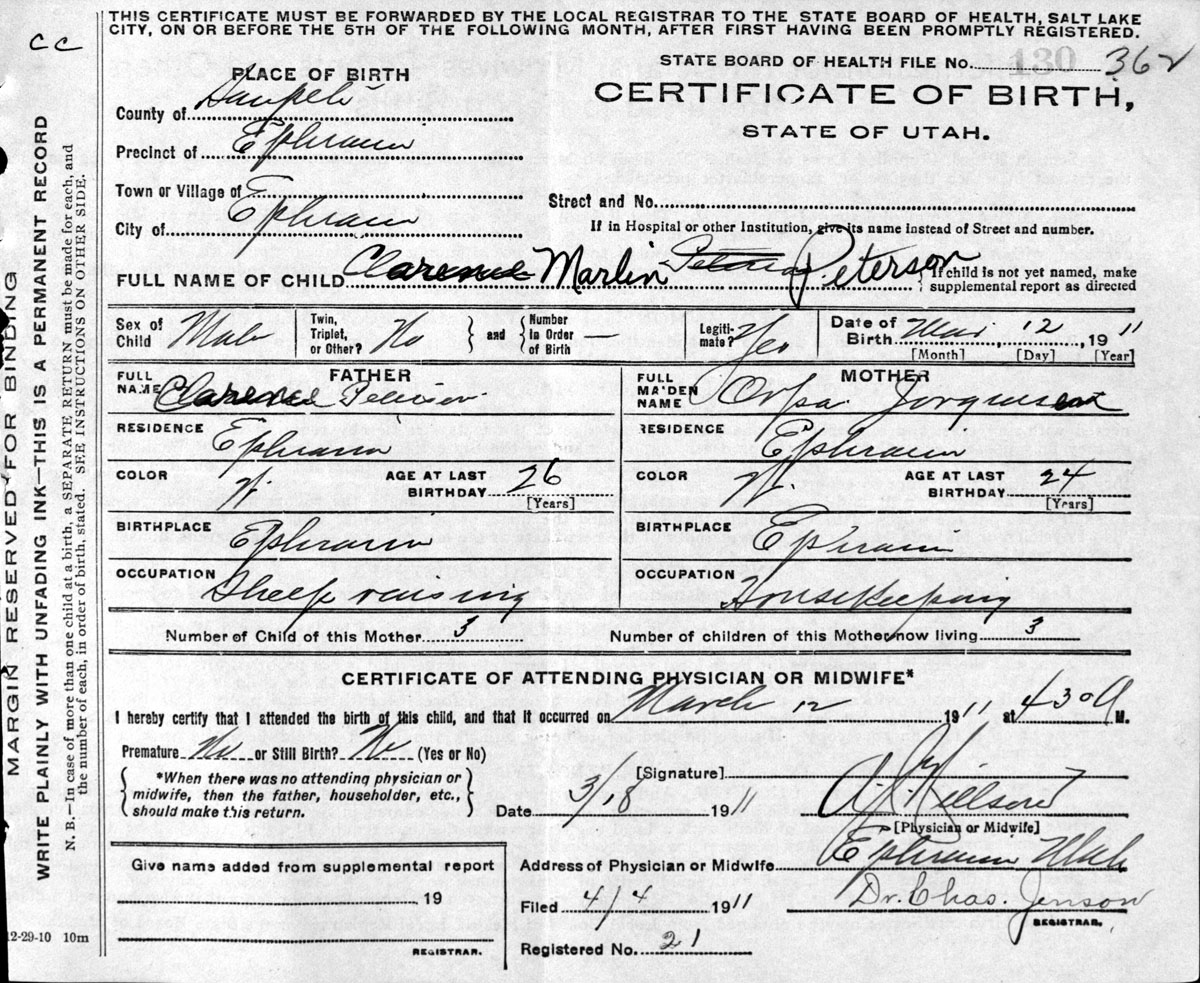 THIS CERTIFICATE MUST BE FORWARDED BY THE LOCAL REGISTRAR TO THE STATE BOARD OF HEALTH, SALT LAKE
CITY, ON OR BEFORE THE 5TH OF THE FOLLOWING MONTH, AFTER FIRST HAVING BEEN PROMPTLY REGISTERED.
CC
STATE BOARD OF HEALTH FILE No. 130 362
PLACE OF BIRTH
CERTIFICATE OF BIRTH,
STATE OF UTAH.
County of Sanpete
Precinct of Ephraim
Town or Village of E
Street and No.
City of Ephraim
If in Hospital or other Institution, give its name instead of Street and number.
FULL NAME OF CHILD Clarence Marlin Peterson Peterson
If child is not yet named, make
supplemental report as directed
Sex of Child Male Twin, Triplet, or Other? No and Number In Order of Birth — Legiti-mate? Yes Date of Birth Mar. 12, 1911
[Month] [Day] [Year]
FATHER MOTHER
FULL NAME Clarence Peterson FULL MAIDEN NAME Orpa Jorgensen
RESIDENCE Ephraim RESIDENCE Ephraim
COLOR W. AGE AT LAST BIRTHDAY 26 COLOR W. AGE AT LAST BIRTHDAY 24
[Years] [Years]
BIRTHPLACE Ephraim BIRTHPLACE Ephraim
OCCUPATION Sheep raising OCCUPATION Housekeeping
Number of Child of this Mother 3 Number of children of this Mother now living 3
CERTIFICATE OF ATTENDING PHYSICIAN OR MIDWIFE*
I hereby certify that I attended the birth of this child, and that it occurred on March 12 1911 at 430 A M.
Premature No or Still Birth? No (Yes or No)
*When there was no attending physician or
midwife, then the father, householder, etc.,
should make this return.
[Signature]
Date 3/18 1911 Nielson
[Physician or Midwife]
Give name added from supplemental report
Address of Physician or Midwife Ephraim Utah
19
Filed 4/4 1911 Dr. Chas. Jenson
REGISTRAR.
REGISTRAR.
Registered No. 21
12-29-10 10m
MARGIN RESERVED FOR BINDING
WRITE PLAINLY WITH UNFADING INK—THIS IS A PERMANENT RECORD
N. B.—In case of more than one child at a birth, a SEPARATE RETURN must be made for each, and
the number of each, in order of birth, stated. SEE INSTRUCTIONS ON OTHER SIDE.